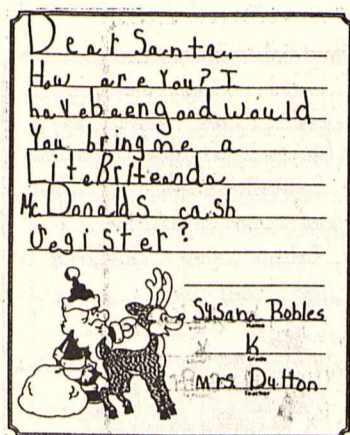 Dear Santa,
How are You? I
havebeengood Would
You bring me a
LiteBriteanda
McDonalds cash
register?
Susana Robles
Name
K
Grade
Mrs Dutton
Teacher